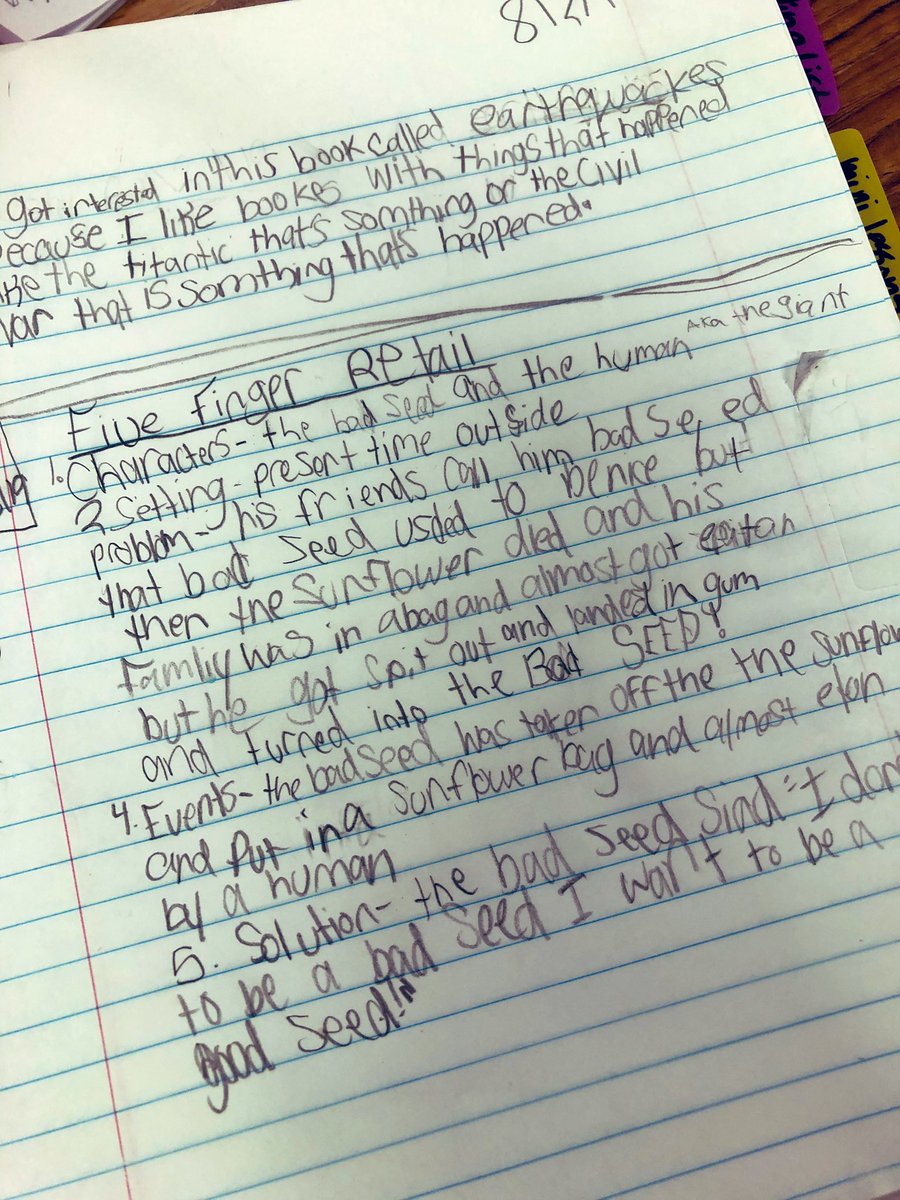 got interested in this book called earthqwackes
because I like bookes with things that happened
like the titantic that's somthing or the Civil
War that is somthing that's happened.
Five Finger Retail
1. Characters- the bad seed and the human AKA the giant
2 Setting- present time outside
problom- his friends call him bad seed
that bad seed usded to benice but
then the sunflower died and his
Famliy was in a bag and almost got eatan
but he got spit out and landed in gum
and turned into the Bad SEED!
4. Events- the bad seed was taken off the the sunflow
and Put in a sunflower bag and almost eton
by a human
5. Solution- the bad seed Siad "I don
to be a bad seed I wan't to be a
good seed!"
mini lesson